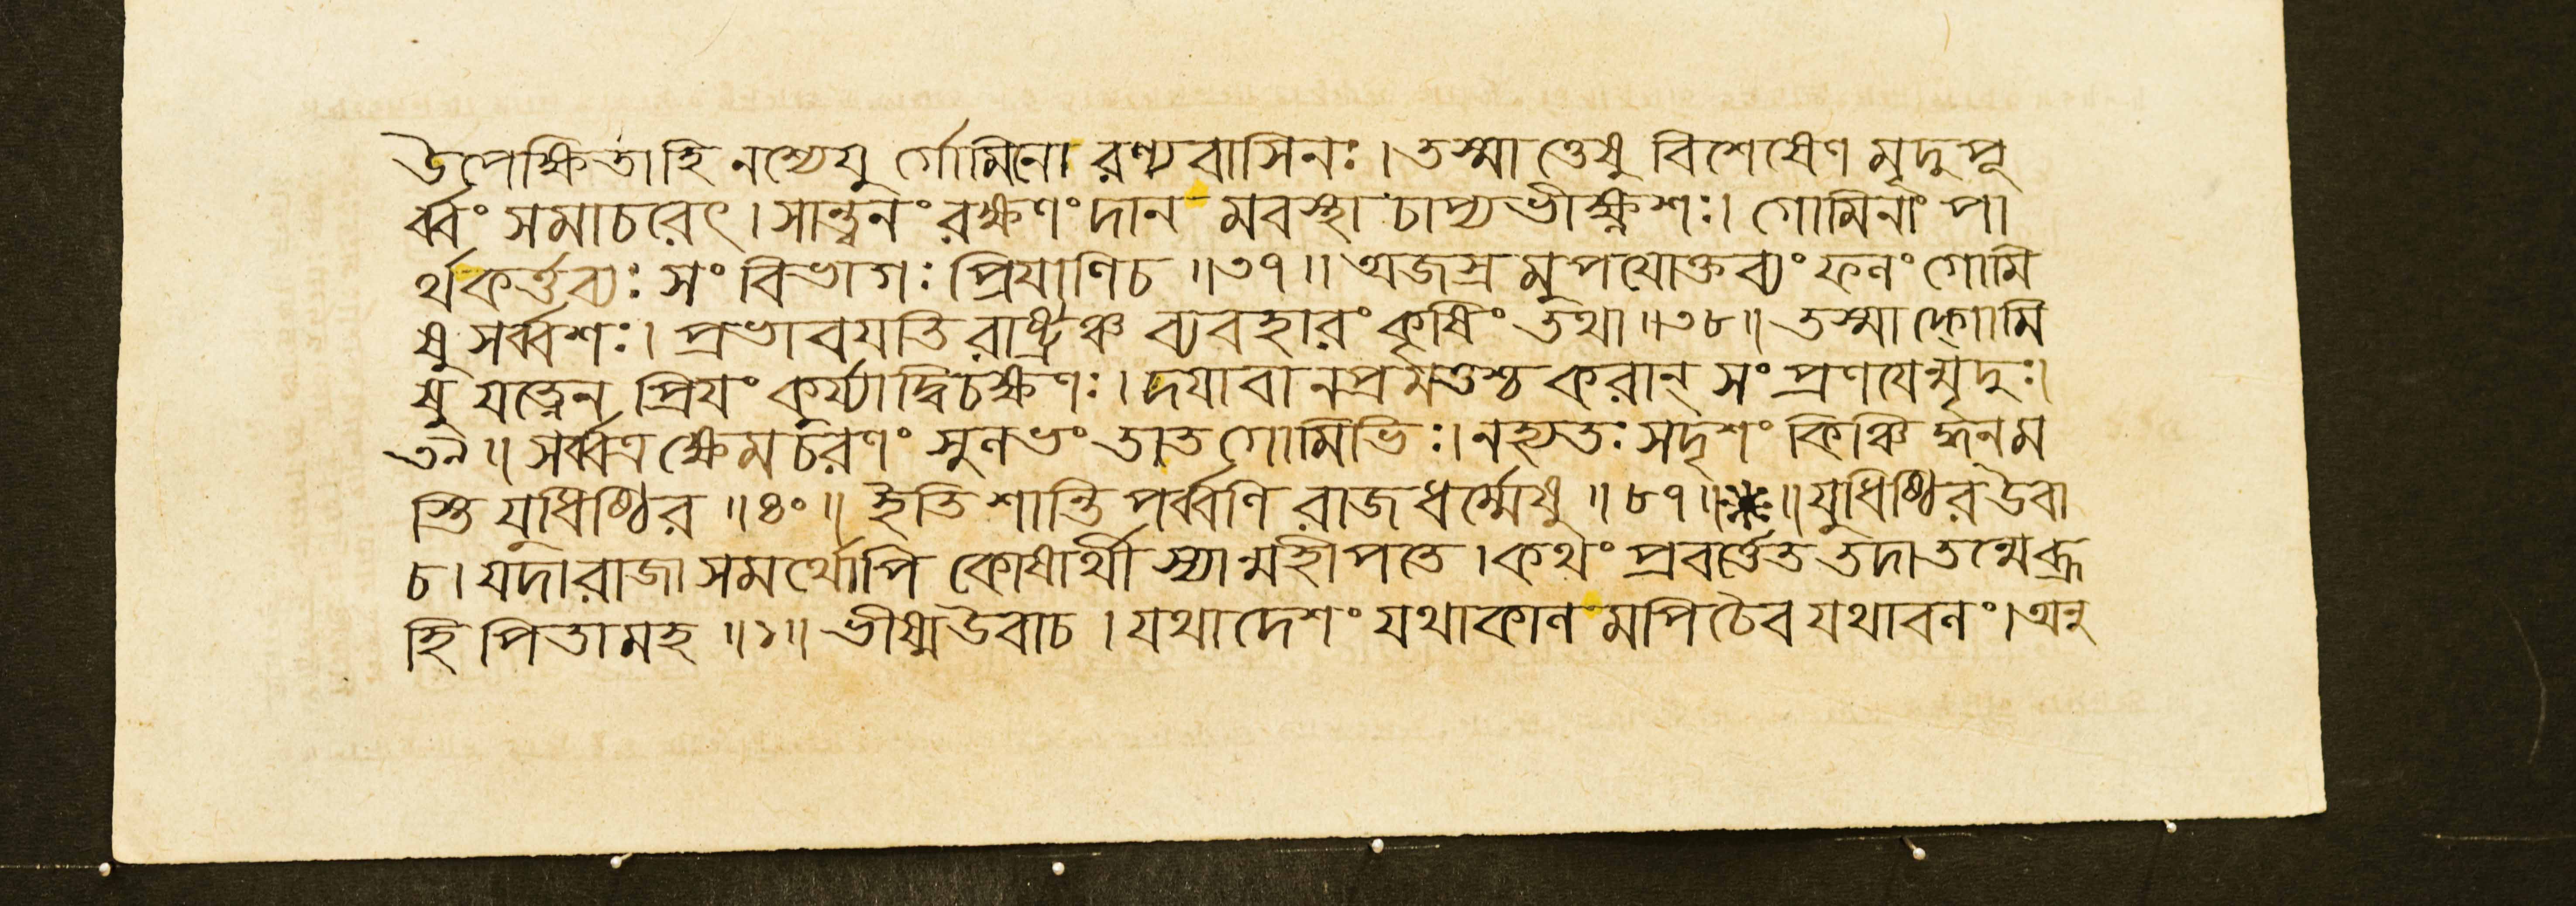 উপেক্ষিতাহি নশ্যেযু র্গোমিনো রণ্যবাসিনঃ। তস্মাত্তেষু বিশেষেণ মৃদুপূ
র্ব্বং সমাচরেৎ। সান্ত্বনং রক্ষণং দান মবস্থা চাপ্যভীক্ষ্ণশঃ। গোমিনাং পা
র্থকর্ত্তব্যঃ সংবিভাগঃ প্রিযাণিচ॥৩৭॥ অজস্র মুপযোক্তব্যং ফলং গোমি
ষু সর্ব্বশঃ। প্রভাবযতি রাষ্ট্রঞ্চ ব্যবহারং কৃষিং তথা॥৩৮॥ তস্মাদ্গোমি
ষু যত্নেন প্রিযং কুর্য্যাদ্বিচক্ষণঃ। দযাবানপ্রমত্তশ্চ করান্ সংপ্রণযেন্মৃদুঃ।
৩৯॥ সর্ব্বত্র ক্ষেমচরণং সুলভং তাত গোমিভিঃ। নহ্যতঃ সদৃশং কিঞ্চি দ্ধনম
স্তি যুধিষ্ঠির॥৪০॥ ইতি শান্তিপর্ব্বণি রাজধর্ম্মেষু॥৮৭॥ ॥ যুধিষ্ঠির উবা
চ। যদারাজা সমর্থোপি কোষার্থী স্যান্মহীপতে। কথং প্রবর্ত্তেত তদা তন্মেব্রূ
হি পিতামহ॥১॥ ভীষ্মউবাচ। যথাদেশং যথাকাল মপিচৈব যথাবলং। অনু